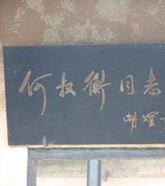 何叔衡同志
胡耀